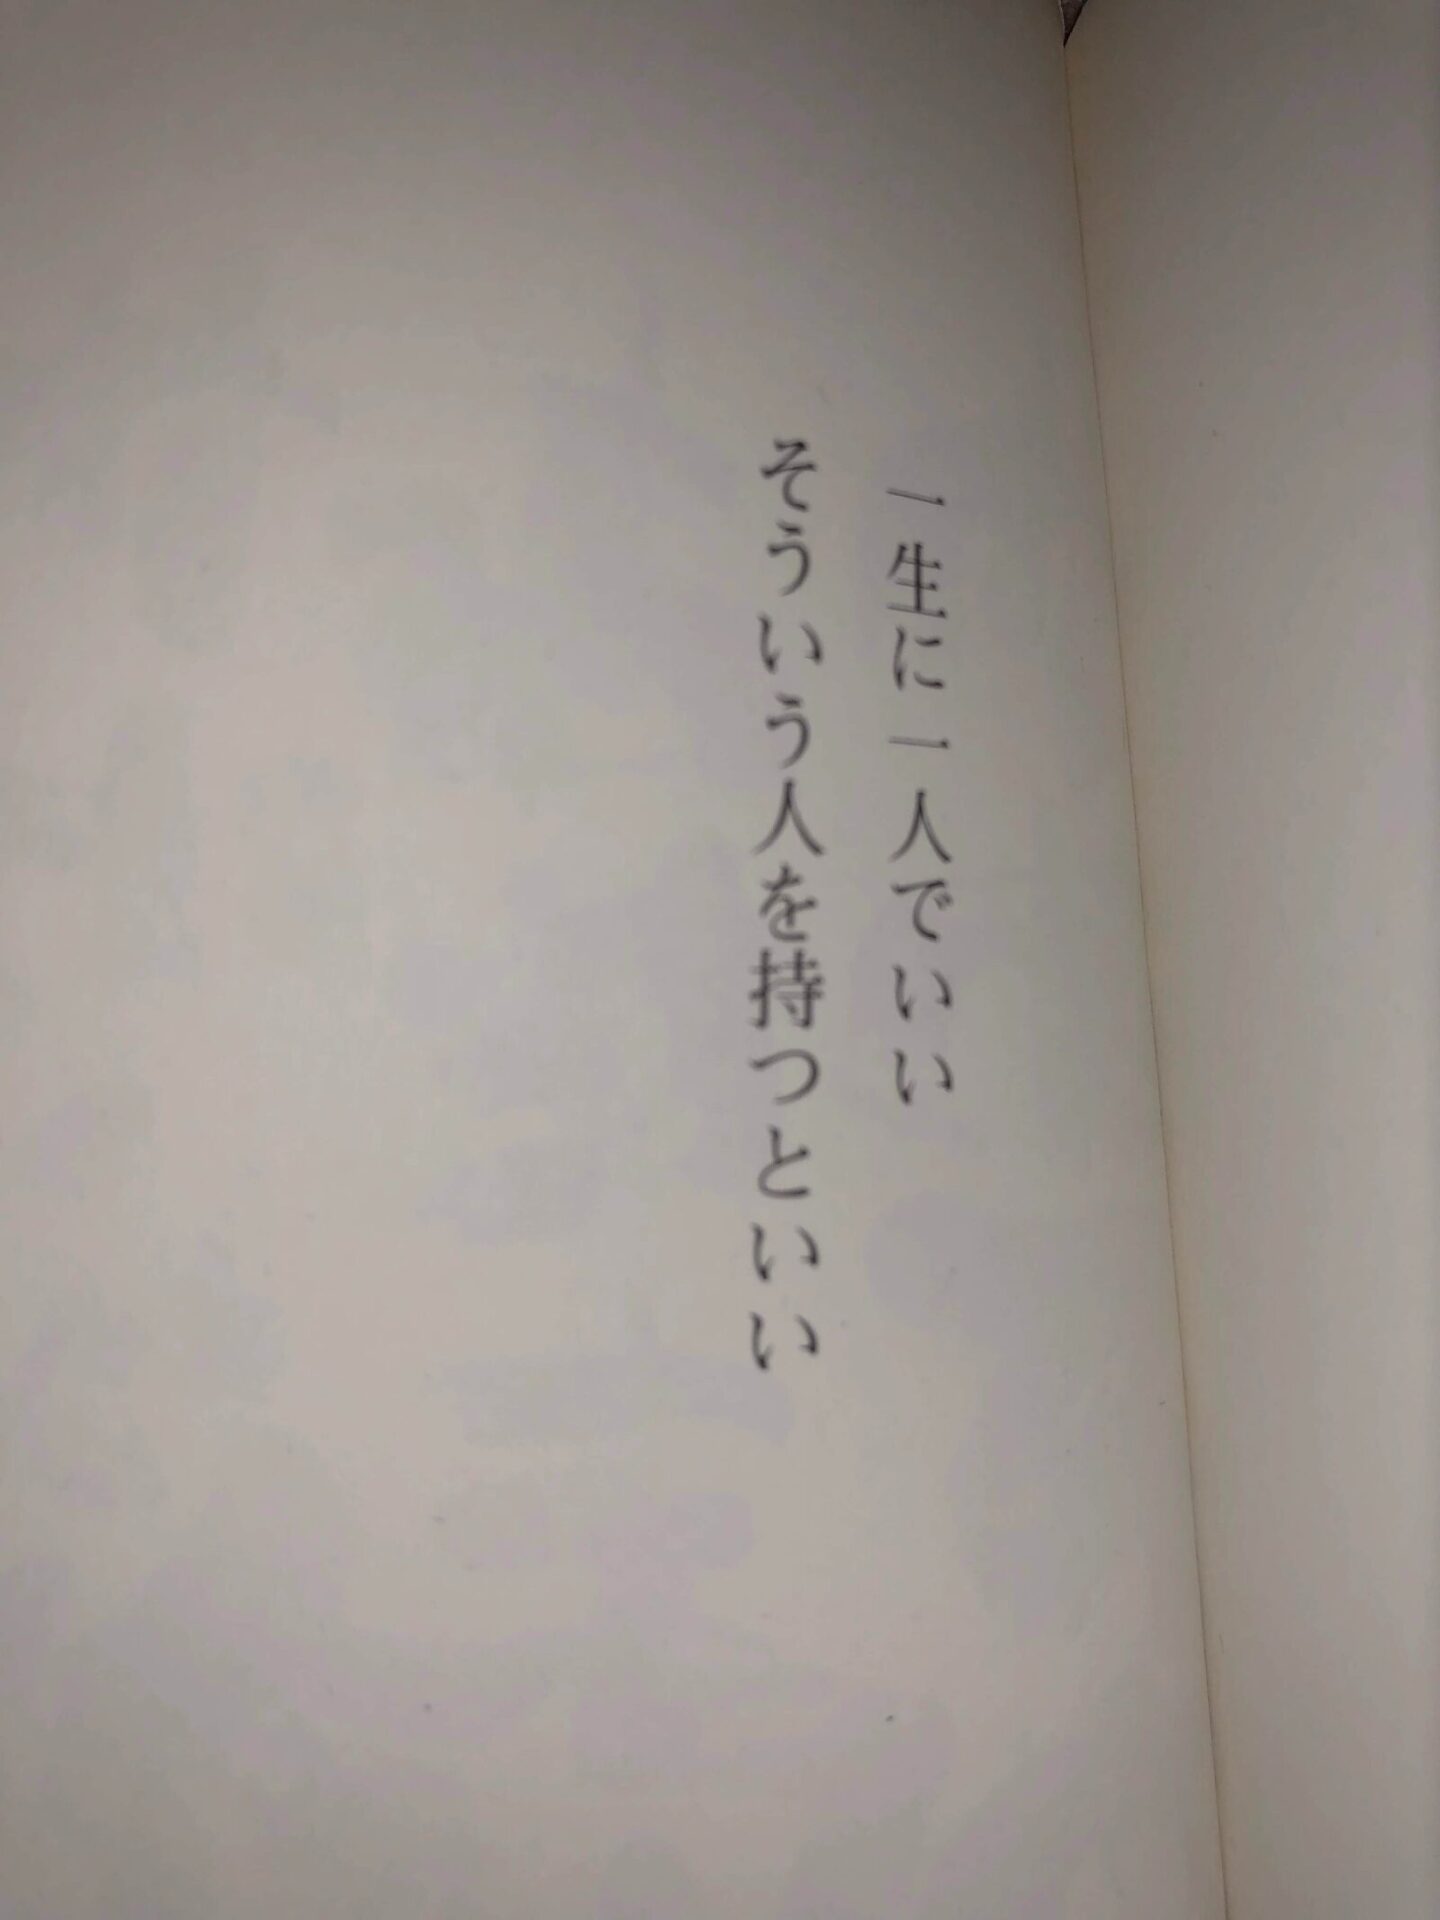 一生に一人でいい
そういう人を持つといい